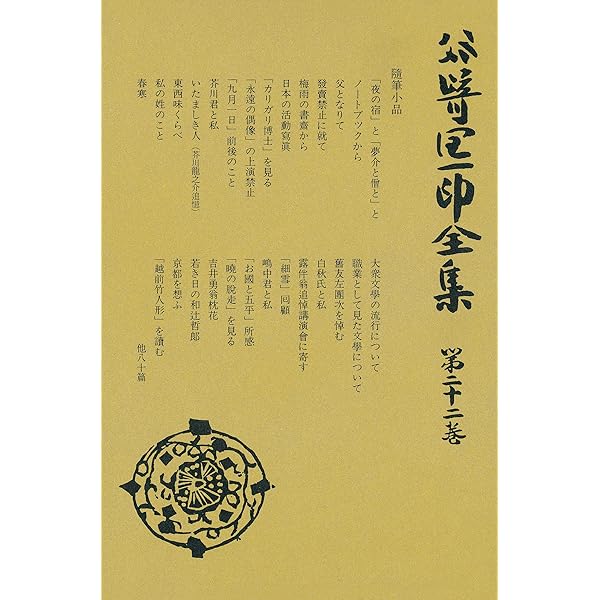 谷崎潤一郎全集 第二十二巻
隨筆小品
「夜の宿」と「夢介と僧と」と
ノートブックから
父となりて
發賣禁止に就て
梅雨の書齋から
日本の活動寫眞
「カリガリ博士」を見る
「永遠の偶像」の上演禁止
「九月一日」前後のこと
芥川君と私
いたましき人（芥川龍之介追憶）
東西味くらべ
私の姓のこと
春寒
大衆文學の流行について
職業として見た文學について
舊友左團次を悼む
白秋氏と私
露伴翁追悼講演會に寄す
「細雪」回顧
嶋中君と私
「お國と五平」所感
「曉の脫走」を見る
吉井勇翁枕花
若き日の和辻哲郎
京都を想ふ
「越前竹人形」を讀む
他八十篇